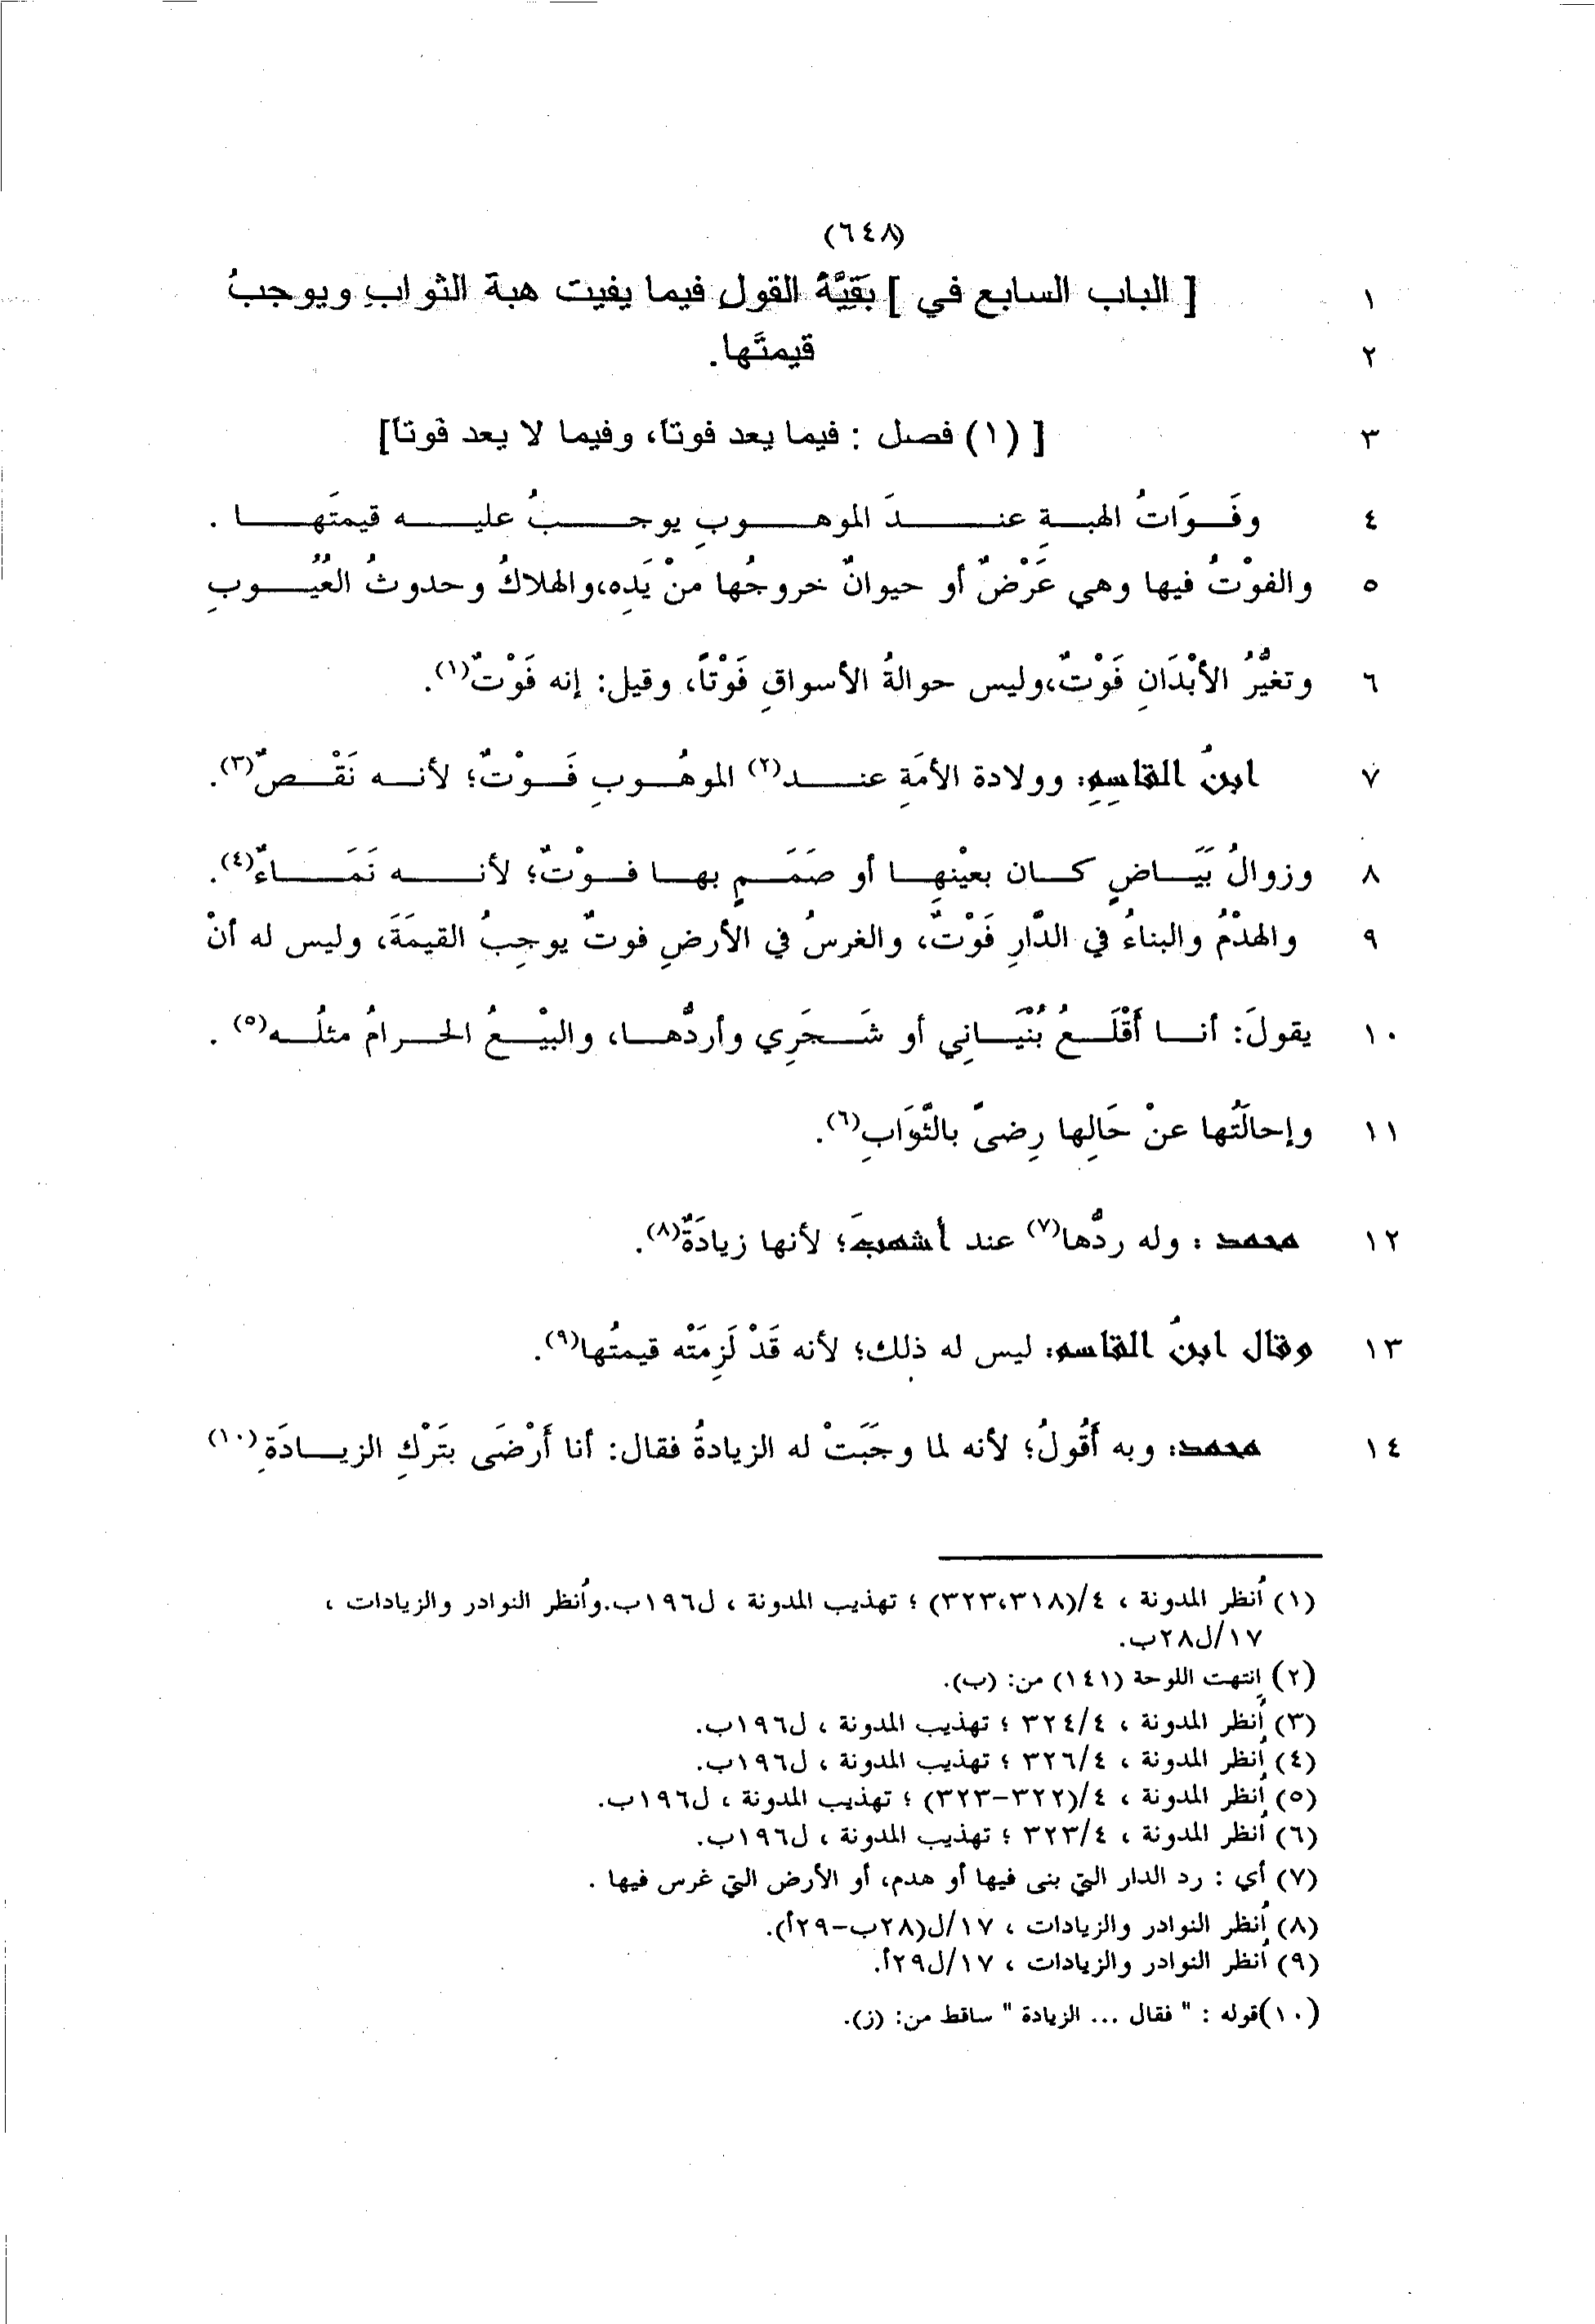 (٦٤٨)
١ [ الباب السابع في ] بَقِيَّةُ القول فيما يفيت هبة الثوابِ ويوجبُ
٢ قيمتَها.
٣ [ (١) فصل : فيما يعد فوتاً، وفيما لا يعد فوتاً]
٤ وفَوَاتُ الهبةِ عندَ الموهوبِ يوجبُ عليه قيمتَها .
٥ والفوْتُ فيها وهي عَرْضٌ أو حيوانٌ خروجُها منْ يَدِه،والهلاكُ وحدوثُ العُيُوبِ
٦ وتغيُّرُ الأبْدَانِ فَوْتٌ،وليس حوالةُ الأسواقِ فَوْتاً، وقيل: إنه فَوْتٌ(١).
٧ ابنُ القاسِمِ: وولادة الأمَةِ عند(٢) الموهُوبِ فَوْتٌ؛ لأنه نَقْصٌ(٣).
٨ وزوالُ بَيَاضٍ كان بعيْنِها أو صَمَمٍ بها فوْتٌ؛ لأنه نَمَاءٌ(٤).
٩ والهدْمُ والبناءُ في الدَّارِ فَوْتٌ، والغرسُ في الأرضِ فوتٌ يوجِبُ القيمَةَ، وليس له أنْ
١٠ يقولَ: أنا أَقْلَعُ بُنْيَانِي أو شَجَرِي وأردُّها، والبيْعُ الحرامُ مثلُه(٥) .
١١ وإحالَتُها عنْ حَالِها رِضىً بالثَّوَابِ(٦).
١٢ محمد : وله ردُّها(٧) عند أشهبَ؛ لأنها زيادَةٌ(٨).
١٣ وقال ابنُ القاسم: ليس له ذلك؛ لأنه قَدْ لَزِمَتْه قيمتُها(٩).
١٤ محمد: وبه أَقُولُ؛ لأنه لما وجَبَتْ له الزيادةُ فقال: أنا أَرْضَى بتَرْكِ الزيادَةِ(١٠)
(١) اُنظر المدونة ، ٤/(٣٢٣،٣١٨) ؛ تهذيب المدونة ، ل١٩٦ب.واُنظر النوادر والزيادات ،
١٧/ل٢٨ب.
(٢) اِنتهت اللوحة (١٤١) من: (ب).
(٣) اُنظر المدونة ، ٣٢٤/٤ ؛ تهذيب المدونة ، ل١٩٦ب.
(٤) اُنظر المدونة ، ٣٢٦/٤ ؛ تهذيب المدونة ، ل١٩٦ب.
(٥) اُنظر المدونة ، ٤/(٣٢٢-٣٢٣) ؛ تهذيب المدونة ، ل١٩٦ب.
(٦) اُنظر المدونة ، ٣٢٣/٤ ؛ تهذيب المدونة ، ل١٩٦ب.
(٧) أي : رد الدار التي بنى فيها أو هدم، أو الأرض التي غرس فيها .
(٨) اُنظر النوادر والزيادات ، ١٧/ل(٢٨ب-٢٩أ).
(٩) اُنظر النوادر والزيادات ، ١٧/ل٢٩أ.
(١٠)قوله : " فقال ... الزيادة " ساقط من: (ز).